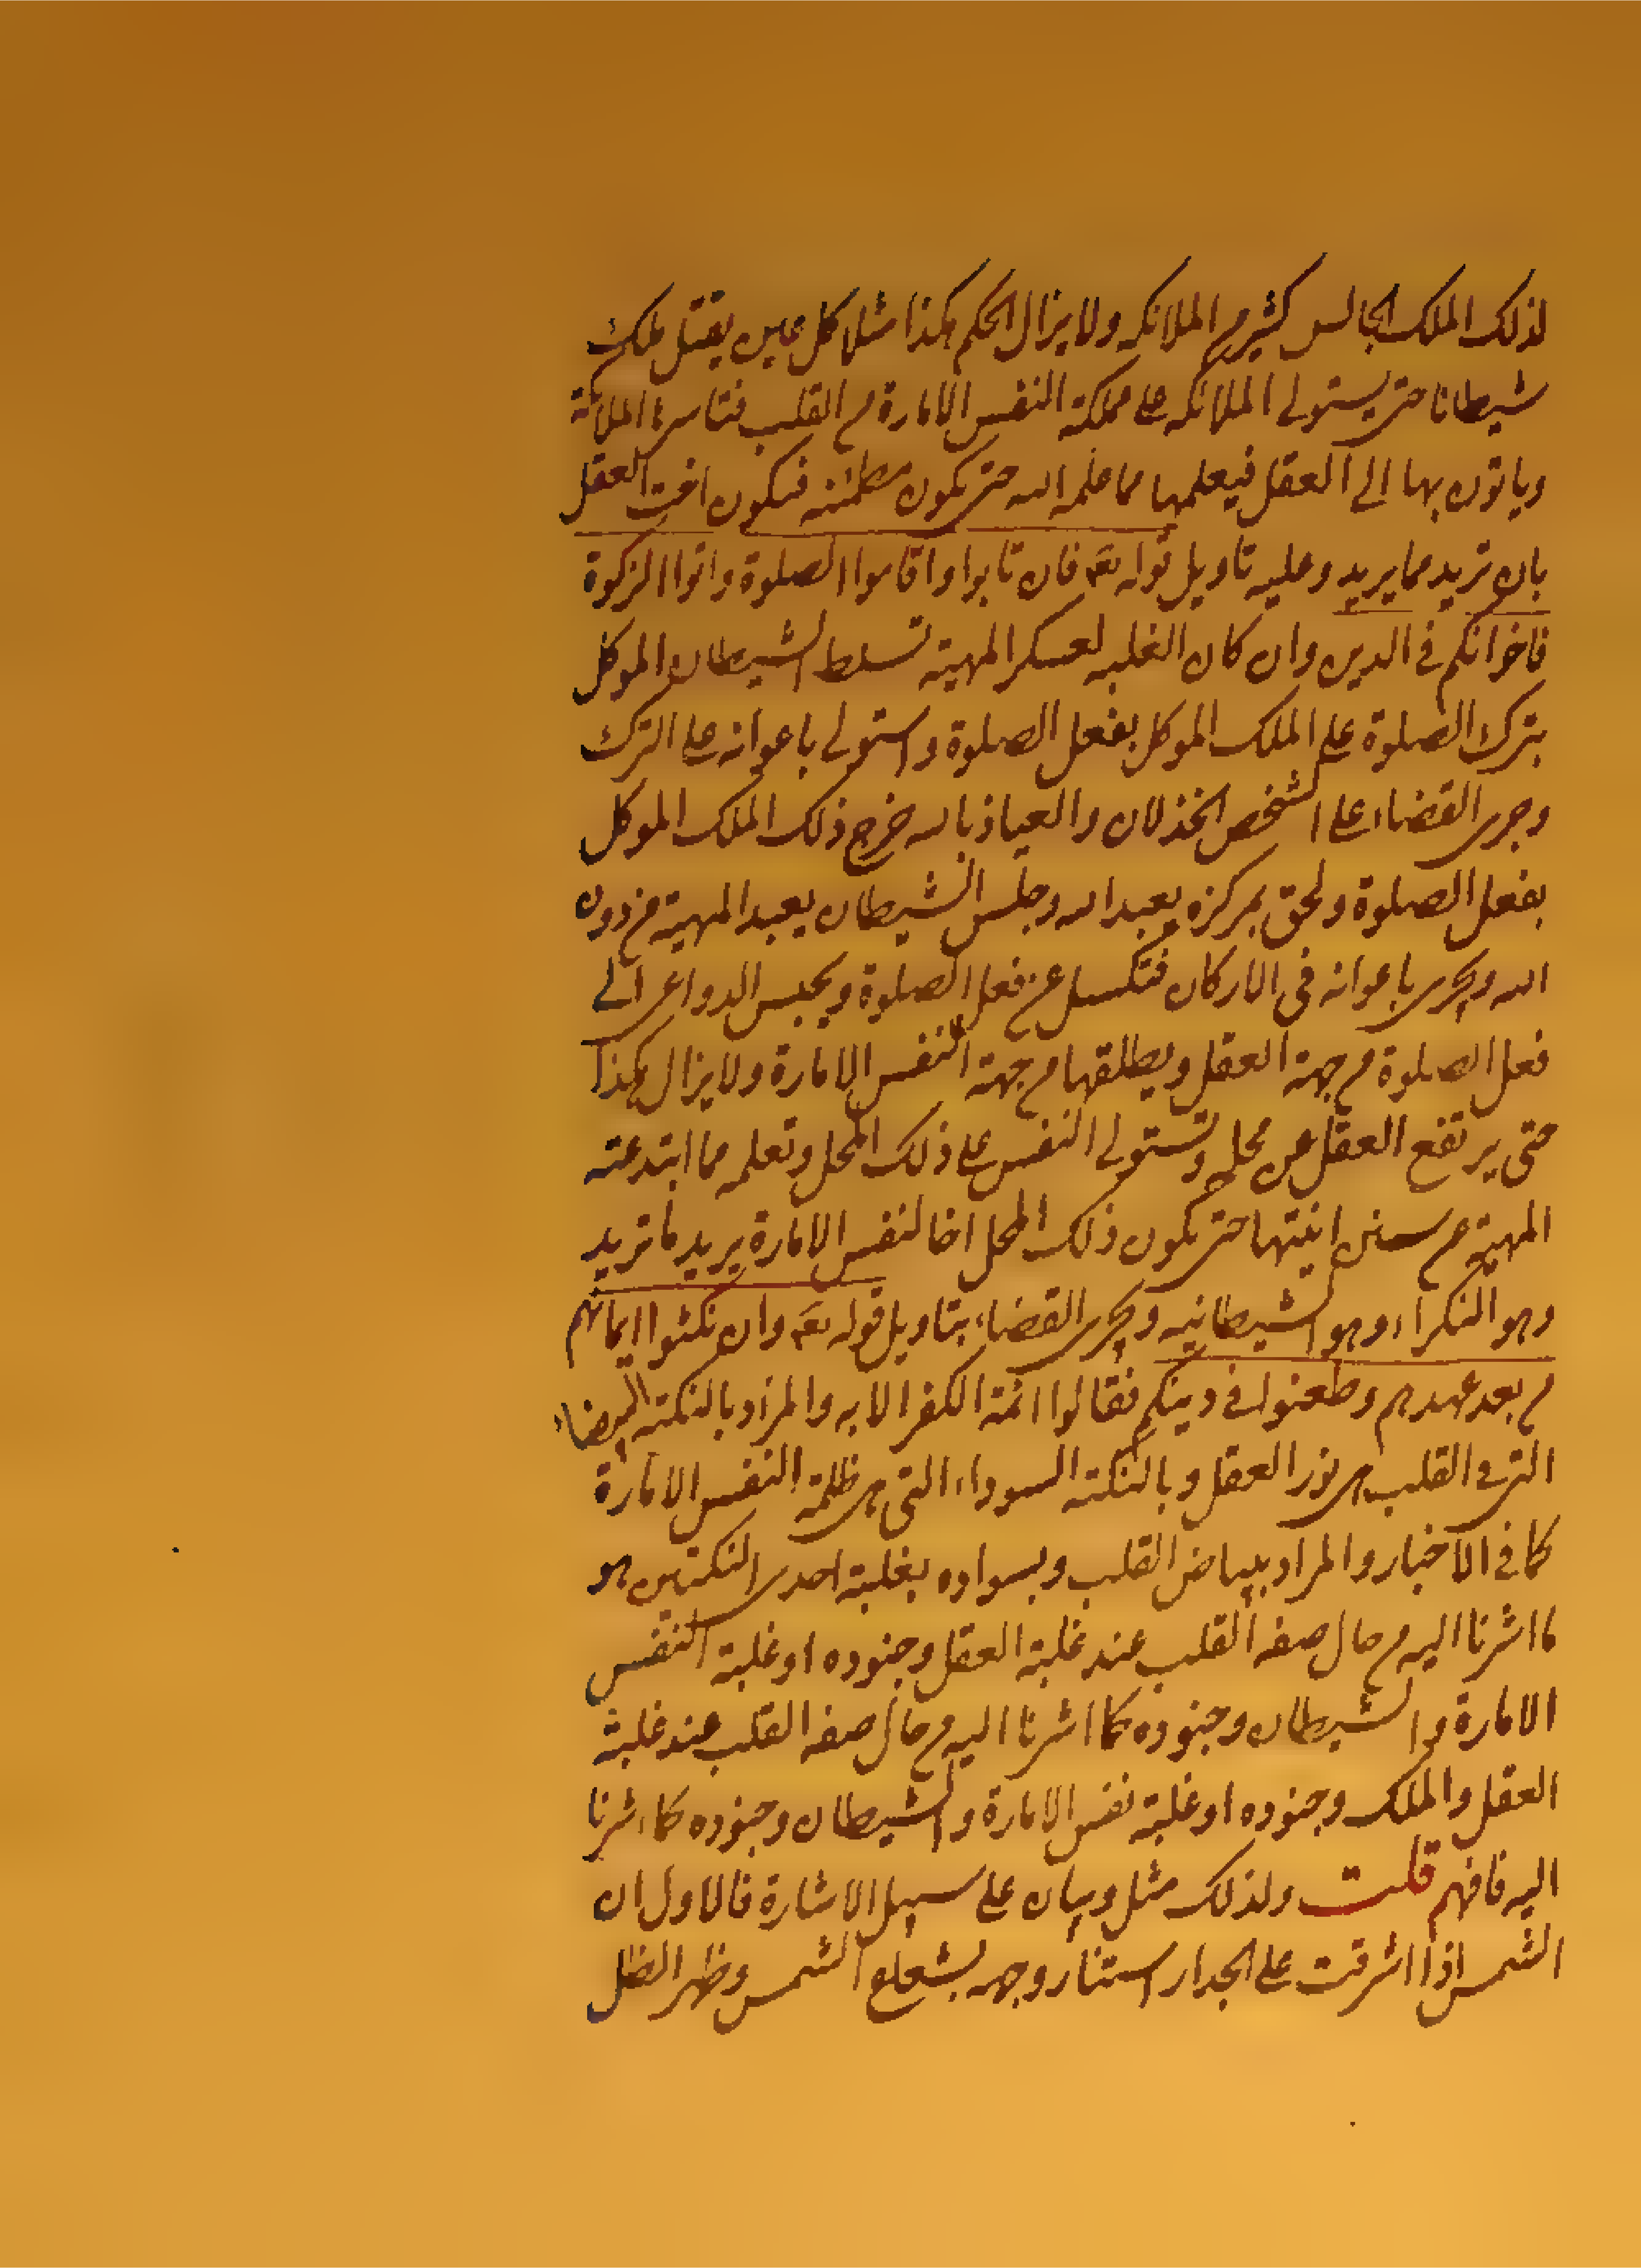 لذلك الملك الجالس كثير من الملائكه ولا يزال الحكم هكذا مثلا كل حين يقتل ملك
شيطانا حتى يستولى الملائكه على مملكة النفس الامارة من القلب فتاسرها الملائكة
وياتون بها الى العقل فيعلمها مما علمه الله حتى تكون مطمئنه فتكون اخت العقل
بان تريد مما يريد وعليه تاويل قوله تع فان تابوا واقاموا الصلوة واتوا الزكوة
فاخوانكم فى الدين وان كان الغلبه لعسكر المهية تسلط الشيطان الموكل
بترك الصلوة على الملك الموكل بفعل الصلوة واستولى باعوانه على الترك
وجرى القضاء على الشخص الخذلان والعياذ بالله خرج ذلك الملك الموكل
بفعل الصلوة ولحق بمركزه يعبد الله وجلس الشيطان يعبد المهية من دون
الله ويجرى باعوانه فى الاركان فتكسل عن فعل الصلوة ويحبس الدواعى الى
فعل الصلوة من جهة العقل ويطلقها من جهة النفس الامارة ولا يزال هكذا
حتى يرتفع العقل عن محله وتستولى النفس على ذلك المحل وتعلمه مما ابتدعته
المهية من سنن انيتها حتى يكون ذلك المحل اخا لنفس الامارة يريد ما تريد
وهو النكراء وهو الشيطانيه ويجرى القضاء بتاويل قوله تع وان نكثوا ايمانهم
من بعد عهدهم وطعنوا فى دينكم فقاتلوا ائمة الكفر الايه والمراد بالنكته البيضاء
التى فى القلب هى نور العقل وبالنكته السوداء التى هى ظلمة النفس الامارة
كما فى الاخبار والمراد ببياض القلب وبسواده بغلبة احدى النكتتين هو
ما اشرنا اليه من حال صفه القلب عند غلبة العقل وجنوده او غلبة النفس
الامارة والشيطان وجنوده كما اشرنا اليه من حال صفه القلب عند غلبة
العقل والملك وجنوده او غلبة نفس الامارة والشيطان وجنوده كما اشرنا
اليه فافهم قلت ولذلك مثل وبيان على سبيل الاشارة فالاول ان
الشمس اذا اشرقت على الجدار استنار وجهه بشعاع الشمس وظهر الظل